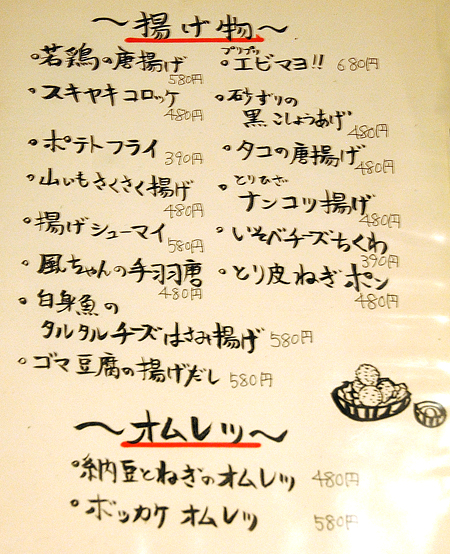 ～揚げ物～
・若鶏の唐揚げ
580円
・スキヤキコロッケ
480円
・ポテトフライ
390円
・山いもさくさく揚げ
480円
・揚げシューマイ
580円
・風ちゃんの手羽唐
480円
・白身魚の
タルタルチーズはさみ揚げ 580円
・ゴマ豆腐の揚げだし 580円
プリプリ
・エビマヨ!! 680円
・砂ずりの
黒こしょうあげ
480円
・タコの唐揚げ
480円
とりひざ
・ナンコツ揚げ
480円
・いそべチーズちくわ
390円
・とり皮ねぎポン
480円
～オムレツ～
・納豆とねぎのオムレツ 480円
・ボッカケオムレツ 580円